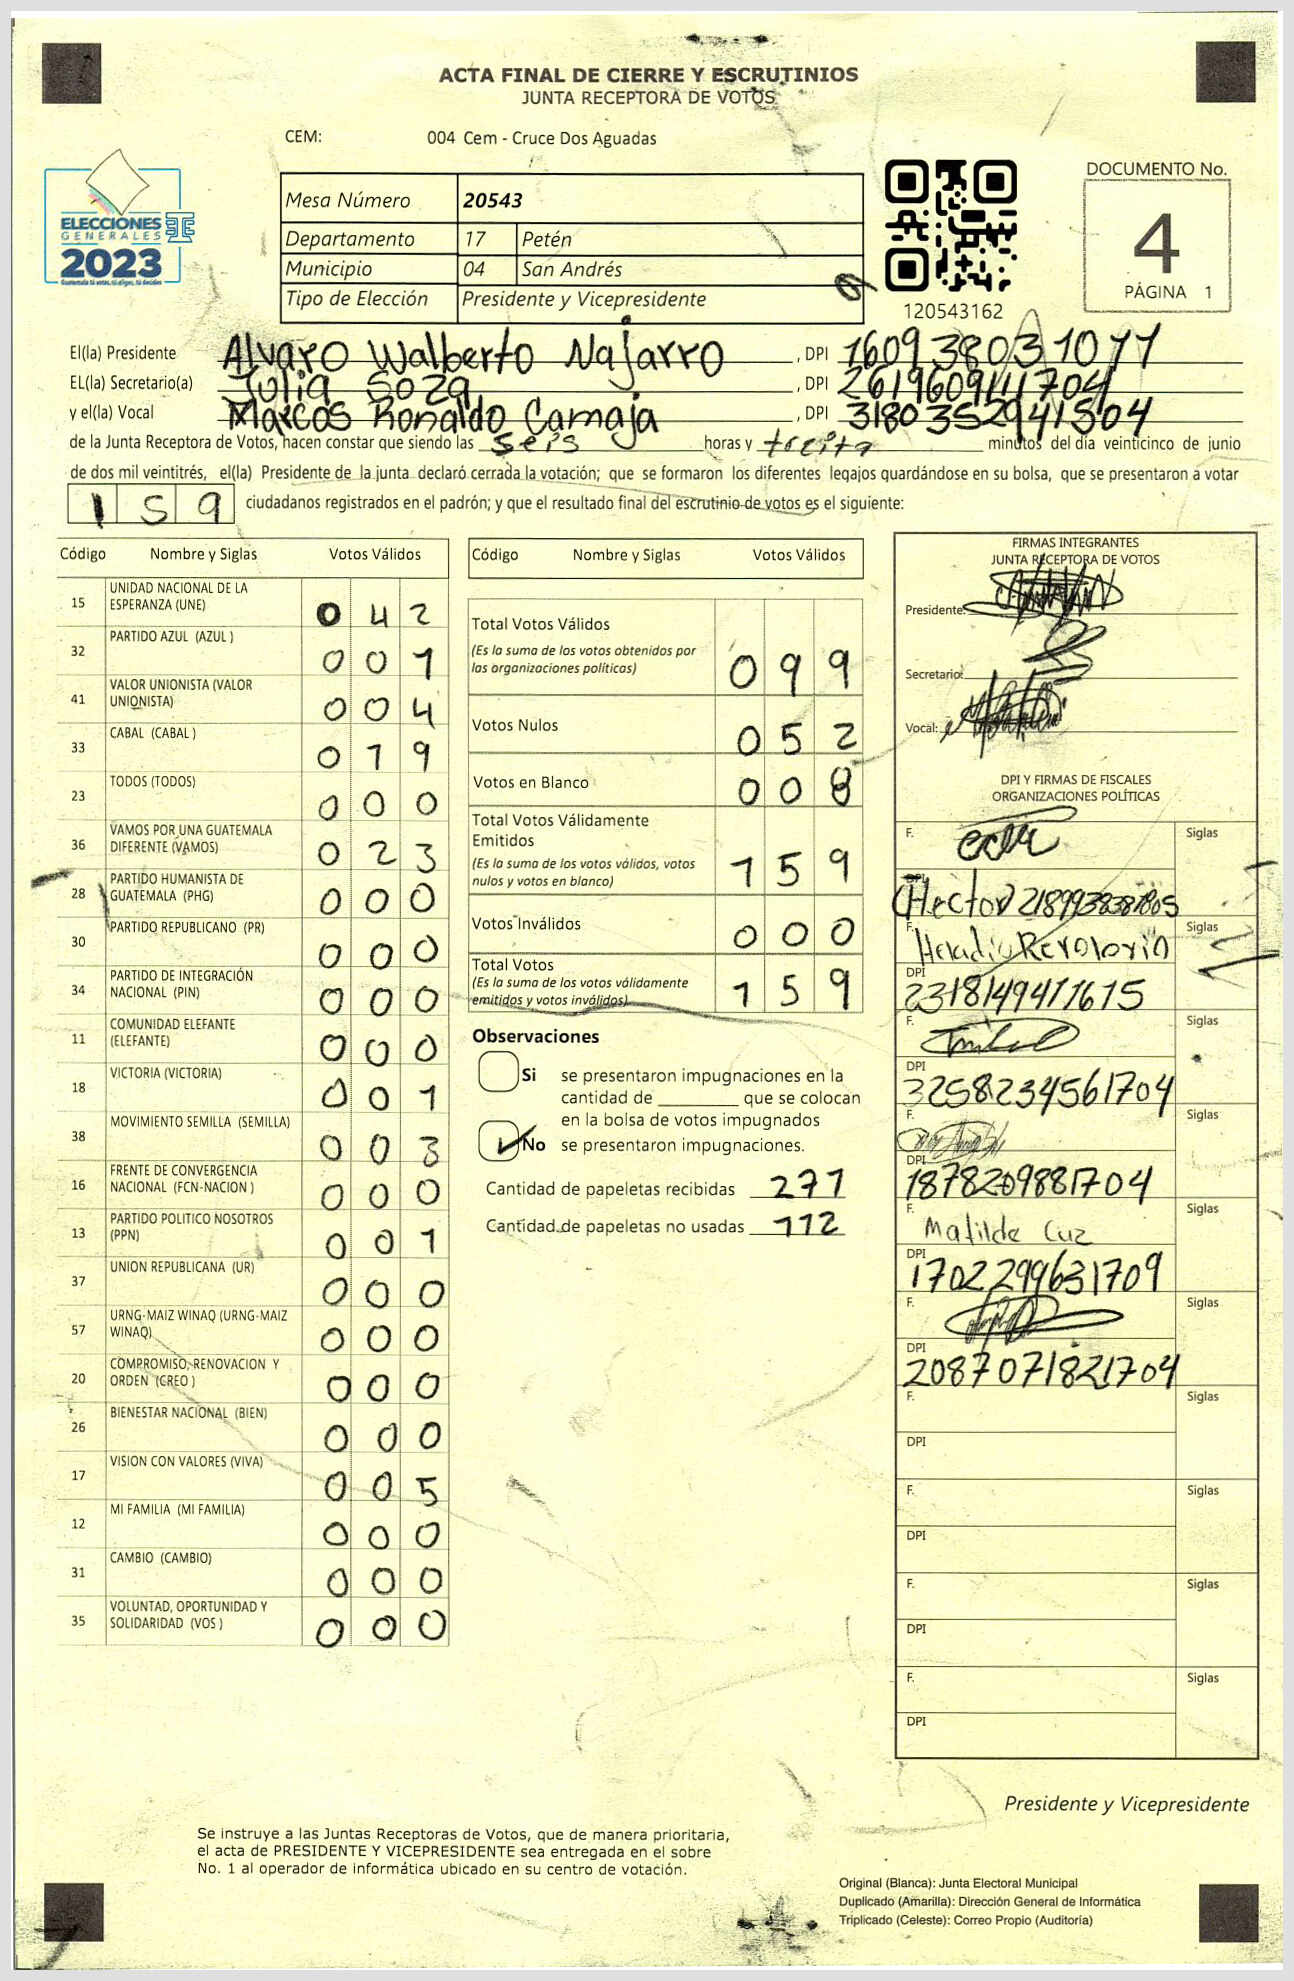 ACTA FINAL DE CIERRE Y ESCRUTINIOS
JUNTA RECEPTORA DE VOTOS
CEM: 004 Cem - Cruce Dos Aguadas
ELECCIONES
GENERALES
2023
Guatemala tú votas, tú eliges, tú decides
Mesa Número 20543
Departamento 17 Petén
Municipio 04 San Andrés
Tipo de Elección Presidente y Vicepresidente
120543162
DOCUMENTO No.
4
PÁGINA 1
El(la) Presidente Alvaro Walberto Najarro, DPI
EL(la) Secretario(a) Julia Soza, DPI
y el(la) Vocal Marcos Ronaldo Camaja, DPI 3180352941504
de la Junta Receptora de Votos, hacen constar que siendo las seis horas y treita minutos del día veinticinco de junio
de dos mil veintitrés, el(la) Presidente de la junta declaró cerrada la votación; que se formaron los diferentes legajos guardándose en su bolsa, que se presentaron a votar
159 ciudadanos registrados en el padrón; y que el resultado final del escrutinio de votos es el siguiente:
Código Nombre y Siglas Votos Válidos
15 UNIDAD NACIONAL DE LA ESPERANZA (UNE) 042
32 PARTIDO AZUL (AZUL ) 001
41 VALOR UNIONISTA (VALOR UNIONISTA) 004
33 CABAL (CABAL ) 019
23 TODOS (TODOS) 000
36 VAMOS POR UNA GUATEMALA DIFERENTE (VAMOS) 023
28 PARTIDO HUMANISTA DE GUATEMALA (PHG) 000
30 PARTIDO REPUBLICANO (PR) 000
34 PARTIDO DE INTEGRACIÓN NACIONAL (PIN) 000
11 COMUNIDAD ELEFANTE (ELEFANTE) 000
18 VICTORIA (VICTORIA) 001
38 MOVIMIENTO SEMILLA (SEMILLA) 003
16 FRENTE DE CONVERGENCIA NACIONAL (FCN-NACION ) 000
13 PARTIDO POLITICO NOSOTROS (PPN) 001
37 UNION REPUBLICANA (UR) 000
57 URNG-MAIZ WINAQ (URNG-MAIZ WINAQ) 000
20 COMPROMISO, RENOVACION Y ORDEN (CREO ) 000
26 BIENESTAR NACIONAL (BIEN) 000
17 VISION CON VALORES (VIVA) 005
12 MI FAMILIA (MI FAMILIA) 000
31 CAMBIO (CAMBIO) 000
35 VOLUNTAD, OPORTUNIDAD Y SOLIDARIDAD (VOS ) 000
Código Nombre y Siglas Votos Válidos
Total Votos Válidos 099
(Es la suma de los votos obtenidos por
las organizaciones políticas)
Votos Nulos 052
Votos en Blanco 008
Total Votos Válidamente
Emitidos 159
(Es la suma de los votos válidos, votos
nulos y votos en blanco)
Votos Inválidos 000
Total Votos 159
(Es la suma de los votos válidamente
emitidos y votos inválidos)
Observaciones
Si se presentaron impugnaciones en la
cantidad de ________ que se colocan
en la bolsa de votos impugnados
No se presentaron impugnaciones.
Cantidad de papeletas recibidas 271
Cantidad de papeletas no usadas 112
FIRMAS INTEGRANTES
JUNTA RECEPTORA DE VOTOS
Presidente:
Secretario:
Vocal:
DPI Y FIRMAS DE FISCALES
ORGANIZACIONES POLÍTICAS
F. Siglas
DPI Hector
F. Heladio Revolorio Siglas
DPI 2318149411615
F. Siglas
DPI 3258234561704
F. Siglas
DPI 1878209881704
F. Matilde Cuz Siglas
DPI 1702299631709
F. Siglas
DPI 2087071821704
F. Siglas
DPI
F. Siglas
DPI
F. Siglas
DPI
F. Siglas
DPI
Presidente y Vicepresidente
Se instruye a las Juntas Receptoras de Votos, que de manera prioritaria,
el acta de PRESIDENTE Y VICEPRESIDENTE sea entregada en el sobre
No. 1 al operador de informática ubicado en su centro de votación.
Original (Blanca): Junta Electoral Municipal
Duplicado (Amarilla): Dirección General de Informática
Triplicado (Celeste): Correo Propio (Auditoría)